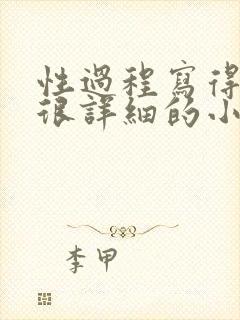 性過程寫得
很詳細的小
李甲